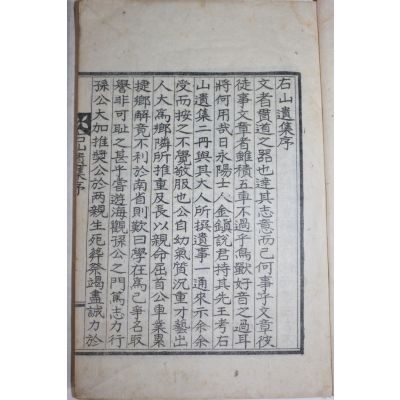 石山遺集序
文者貫道之器也達其志意而已何事乎文章彼
徒事文章者雖積五車不過乎鳥獸好音之過耳
將何用哉日永陽士人金鎭說君持其先王考石
山遺集二冊與其大人所撰遺事一通來示余余
受而按之不覺敬服也公自幼氣質沉重才藝出
人大爲鄕隣所推重及長以親命屈首公車業累
捷鄕解竟不利於南省則歎曰學在爲己爭名取
譽非可恥之甚乎嘗遊海觀孫公之門篤志力行
孫公大加推奬公於两親生死葬祭竭盡誠力於
石山遺集序